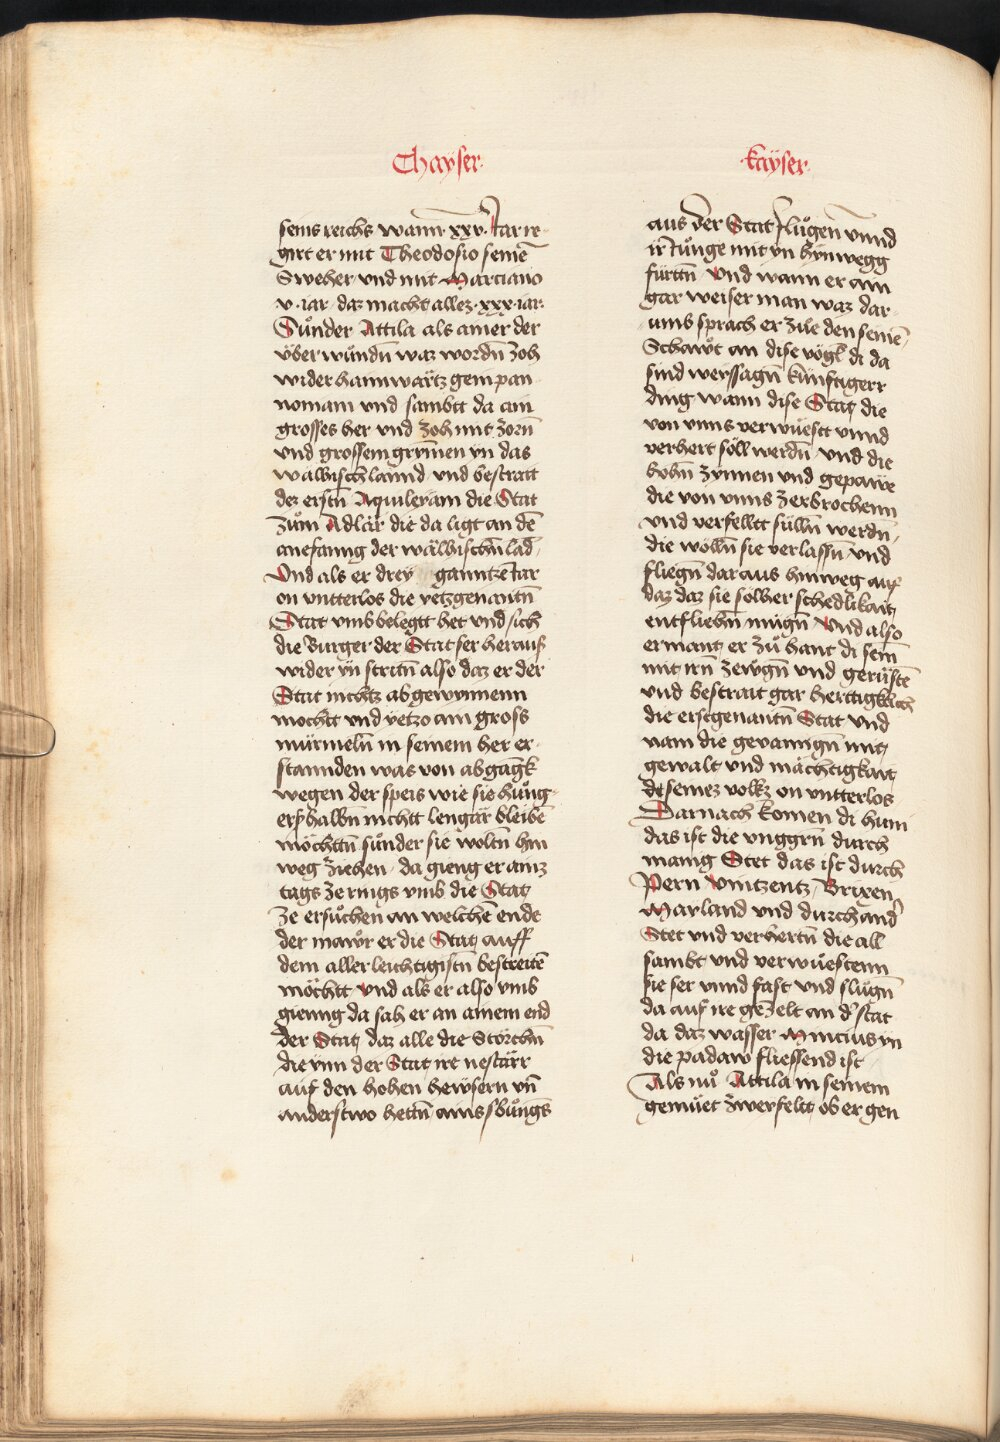 Chayser
seins reichs wann xxv Jar re-
girt er mit Theodosio seinē
Sweher vnd mit Marciano
v · iar · daz macht allez · xxx · iar ·
Sůnder Attila als ainer der
vberwůndn̄ waz wordn̄ zoh
wider haimwärtz gein pan
nomam vnd sambtt da ain
grosses her vnd zoh mit zorn̄
vnd grossem grymen yn das
walhisch lannd vnd bestratt
dez erstn̄ Aquileram die Stat
zům Adlär die da ligt an dē
anefanng der wälhischn̄ lād
Vnd als er drey ganntze Jar
on vntterlos die yetzgenantn̄
Stat vmbbelegtt het vnd sich
die Burger der Stat ser herauß
wider yn stritn̄ also daz er der
Stat nichtz abgewynnenn
mochtt vnd yetzo ain gross
mürmeln̄ in seinem her er-
stannden was von abgāgk
wegen der speis wie sie hůng-
ersshalbn̄ nichtt lengär bleibē
möchttn̄ sůnder sie woltn̄ hin
weg ziehen · da gieng er ainz
tags ze rings vmb die Statz
ze ersůchen an welchē ende
der mawr er die Statz auff
dem aller leichtigistn̄ bestreitē
möchtt vnd als er also vmb
gienng da sah er an ainem end
der Statz daz alle die Störchn̄
die ynn der Stat ire nestärr
auf den hohen hewsern vn̄
anderstwo hettn̄ auns sbůngs
kayser
aus der Stat flůgen̄ vnnd
ir Jůnge mit yn hynwegg
fürttn̄ · Vnd wann er ain
gar weiser man waz dar
vmb sprach er zůe den seinē
Schawt an dise vögl di da
sind werssagn̄ künftigerr
ding wann dise Statz die
von vnns verwůestt vnnd
verhert söll werdn̄ vnd die
hohn̄ zynnen vnd gepawe
die von vnns zerbrochenn
vnd verfelltt sülln̄ werdn̄
die wölln̄ sie verlassn̄ vnd
fliegn̄ daraus hinweg auf
daz daz sie sölher schedlikaitz
entfliehn̄ mügn̄ Vnd also
ermantz er zů hant di sein̄
mit irn̄ zewgn̄ vnd gerüstē
vnd bestrait gar herttigklich
die erstgenantn̄ Stat vnd
nam die gevanngn̄ mitz
gewalt vnd mächtigkaitz
desemez volkz on vntterlos
Darnach komen di huni
das ist die vnggrn̄ durch
manig Stet das ist durch
Pern Vintzentz · Brixen
Marland vnd durch and̓
Stet vnd verhertn̄ die all
sambt vnd verwůestenn
sie ser vnnd fast vnd slügn̄
da auf ire gezelt an d̓ stat
da daz wasser Mincius yn
die padaw fliessend ist
Als nů Attila in seinem
gemüet zweyfeltt ob er gen